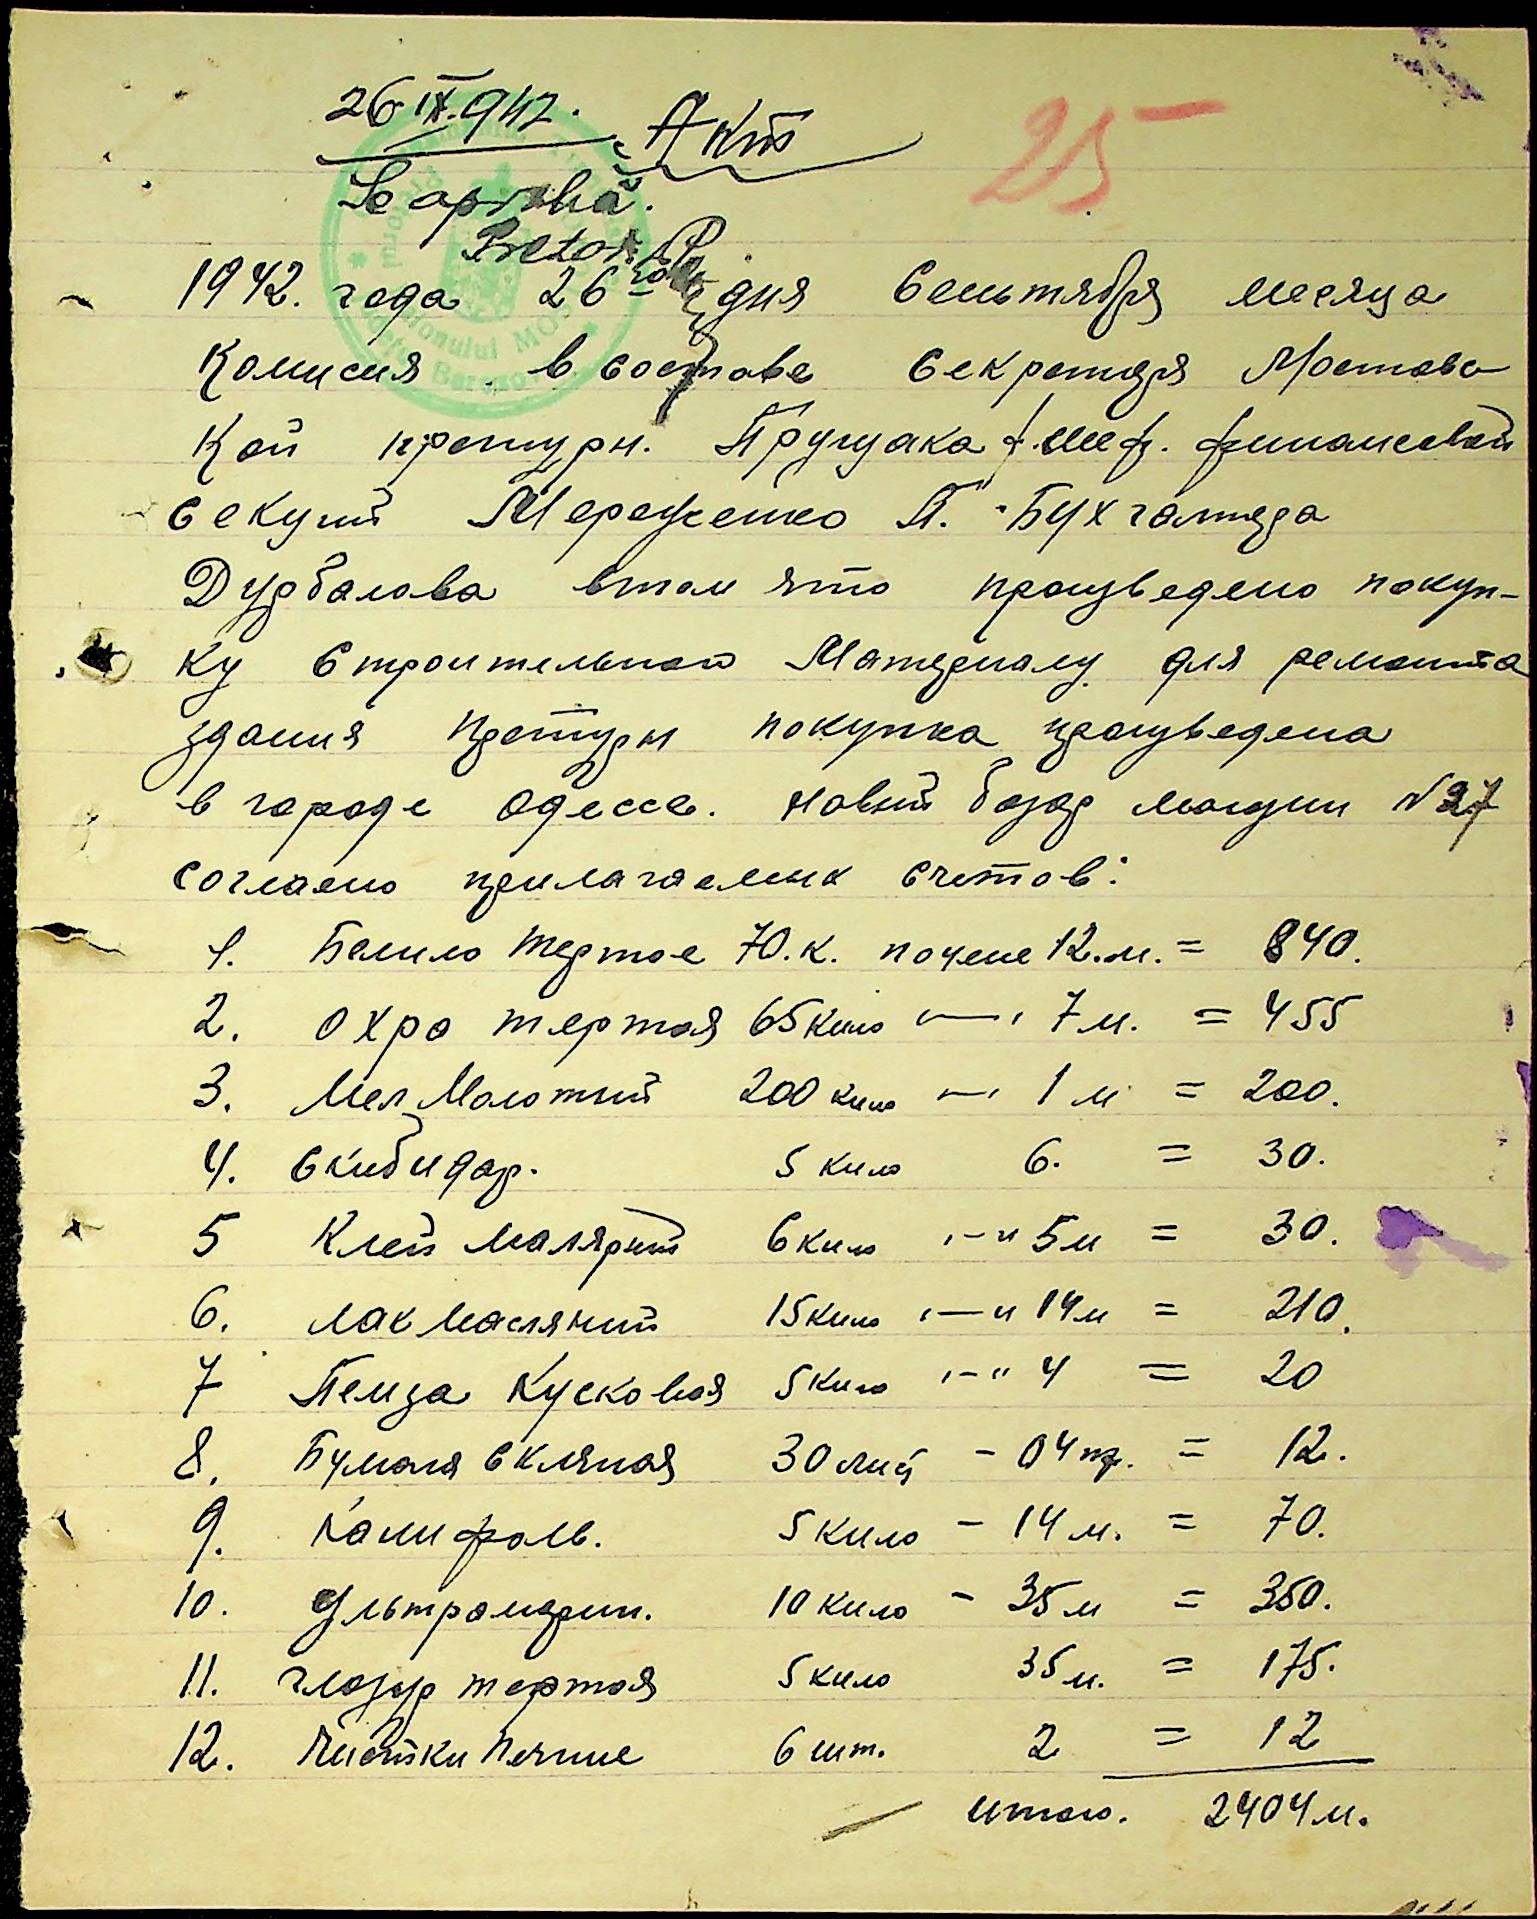 26 IX. 942.
Акт
25
Se aprobă.
Pretor
1942. года 26го дня Сентября месяца
Комисия в составе Секретаря Мостовс
кой претури. шеф. финансовой
секций Мереженко П. Бухгалтера
Дурбалова втом что произведено покуп-
ку Строительнои Материалу для ремонта
здания Претури покупка произведена
в городе Одессе. Новий базар могазин N27
согласно прилагаемих счетов:
1. Белило тертое 70.к. поцене 12.м. = 840.
2. Охра тертая 65 кило —„ 7 м. = 455
3. Мел Молотий 200 кило —„ 1 м = 200.
4. Скибидар. 5 кило 6. = 30.
5 Клей малярний 6 кило „—„ 5м = 30.
6. Лак масляний 15 кило „—„ 14м = 210.
7 Пемза Кусковая 5 кило „—„ 4 = 20
8. Бумага скляная 30 лист - 04 пф. = 12.
9. Канифоль. 5 кило - 14 м. = 70.
10. Ультрамарин. 10 кило - 35 м = 350.
11. глазур тертая 5 кило 35 м. = 175.
12. Чистки Печние 6 шт. 2 = 12
итого. 2404 м.